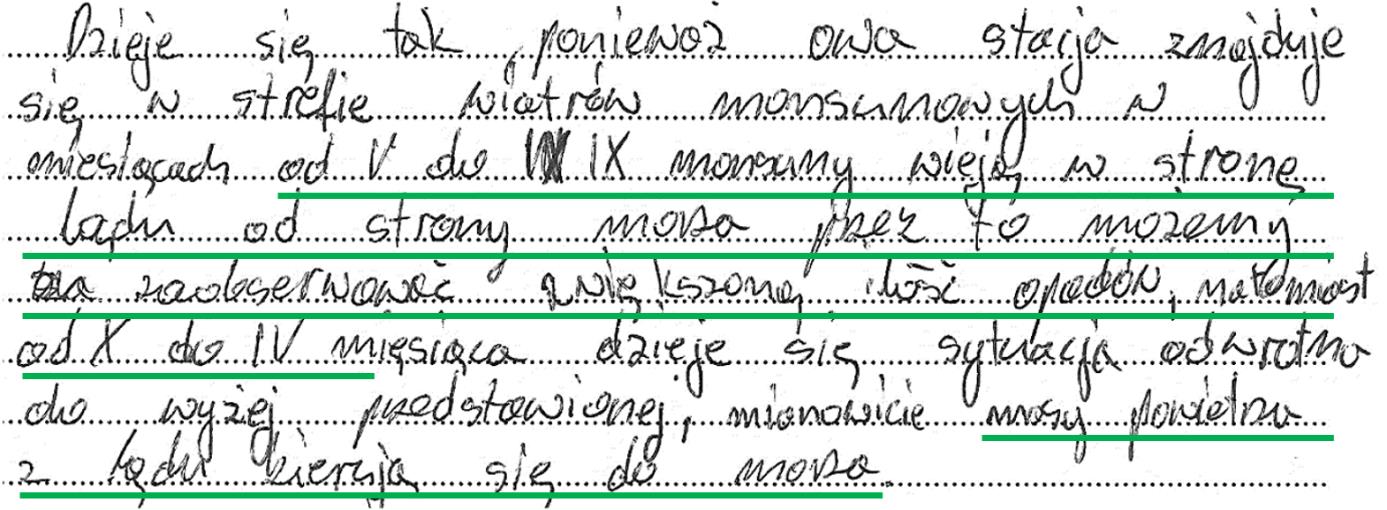 Dzieje się tak, ponieważ owa stacja znajduje
się w strefie wiatrów monsunowych w
miesiącach od V do IX monsuny wieją w stronę
lądu od strony morza przez to możemy
zaobserwować zwiększoną ilość opadów, natomiast
od X do IV miesiąca dzieje się sytuacja odwrotna
do wyżej przedstawionej, mianowicie masy powietrza
z lądu kierują się do morza.